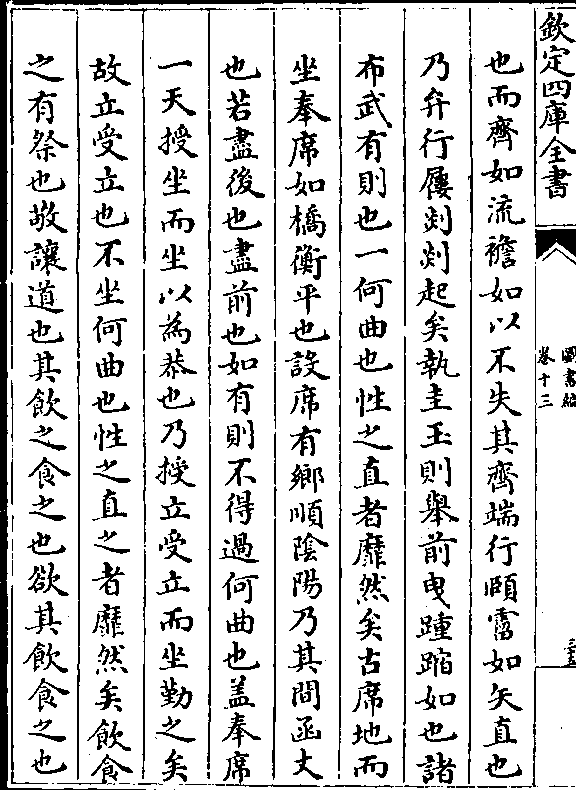 欽定四庫全書
圖書編
卷十三
也而齊如流襜如以不失其齊端行頤霤如矢直也
乃弁行屨剡剡起矣執圭玉則舉前曳踵蹜如也諸
布武有則也一何曲也性之直者靡然矣古席地而
坐奉席如橋衡平也設席有鄉順陰陽乃其間函丈
也若盡後也盡前也如有則不得過何曲也盖奉席
一天授坐而坐以為恭也乃授立受立而坐勤之矣
故立受立也不坐何曲也性之直之者靡然矣飲食
之有祭也敬讓道也其飲之食之也欲其飲食之也